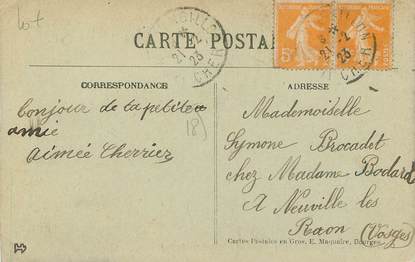 Lot
CARTE POSTALE
CORRESPONDANCE
Bonjour de ta petite
amie
Aimée Cherrier
18
ADRESSE
Mademoiselle
Symone Brocadet
chez Madame Bodard
A Neuville les
Raon (Vosges)
Cartes Postales en Gros, E. Maquaire, Bourges
5c
21-2
23
CHER
21-2
23
CHER